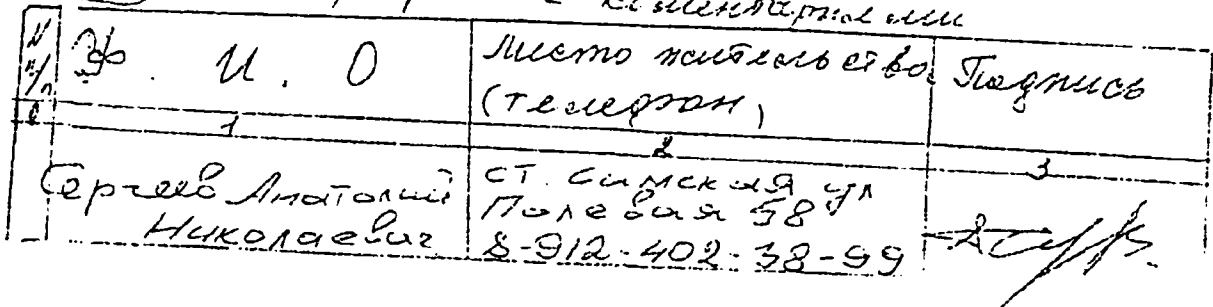 с комментариями
N п/п Ф. И. О Место жительства (телефон) Подпись
1 2 3
Сергеев Анатолий Николаевич ст. Симская ул Полевая 58 8-912-402-38-99